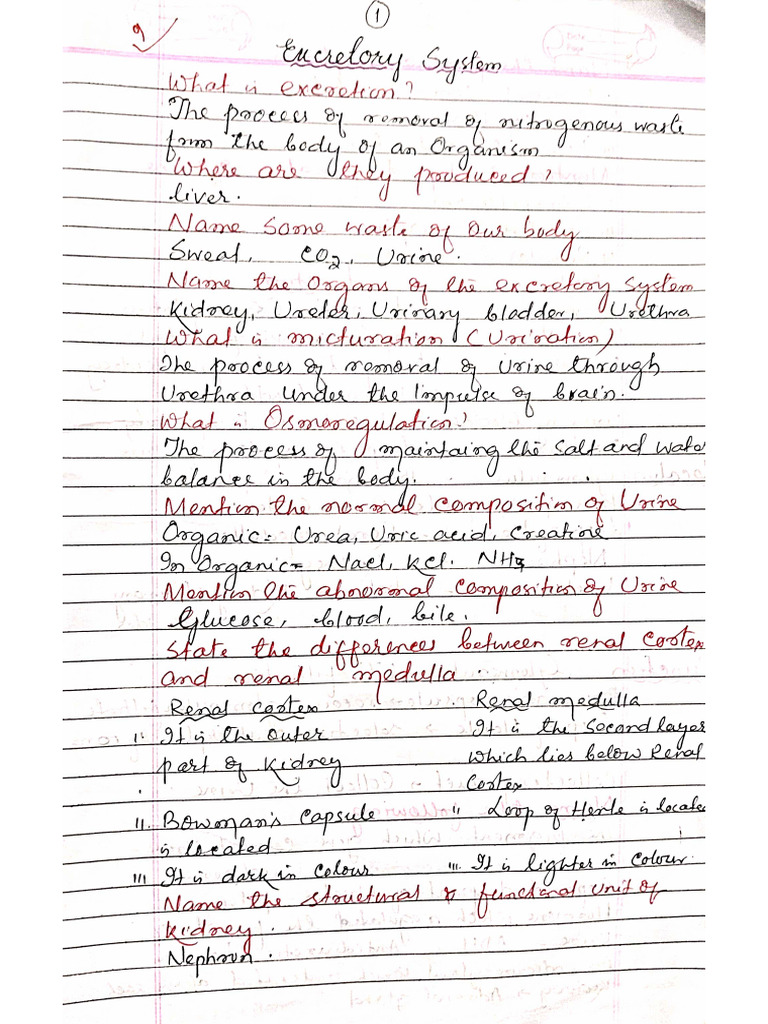 1
9
Excretory System
What is excretion?
The process of removal of nitrogenous waste
from the body of an Organism
Where are they produced?
liver.
Name Some waste of Our body
Sweat, CO2, Urine.
Name the Organs of the excretory System
Kidney, Ureter, Urinary bladder, Urethra
What is micturation (Urination)
The process of removal of Urine through
Urethra under the Impulse of brain.
What is Osmoregulation?
The process of maintaing the Salt and Wate
balance in the body.
Mention the normal composition of Urine
Organic = Urea, Uric acid, Creatine
In Organic = Nacl, Kcl. NH3
Mention the abnormal composition of Urine
Glucose, blood, bile.
State the differences between renal Cortex
and renal medulla.
Renal cortex Renal medulla
i. It is the outer It is the Second layer
part of Kidney which lies below Renal
Cortex
ii. Bowman's Capsule ii Loop of Henle is locate
is located
iii It is dark in Colour iii. It is lighter in Colour.
Name the structural & functional unit of
Kidney.
Nephron.